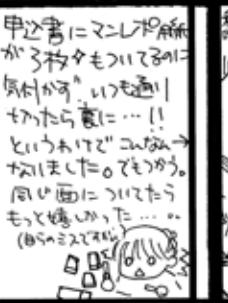 申込書にマンレポ用紙
が3枚もついてるのに
気付かず いつも通り
切ったら裏に…!!
というわけで こんなん→
なりました。でもつかう。
同じ面についてたら
もっと嬉しかった…。
(自らのミスですが)